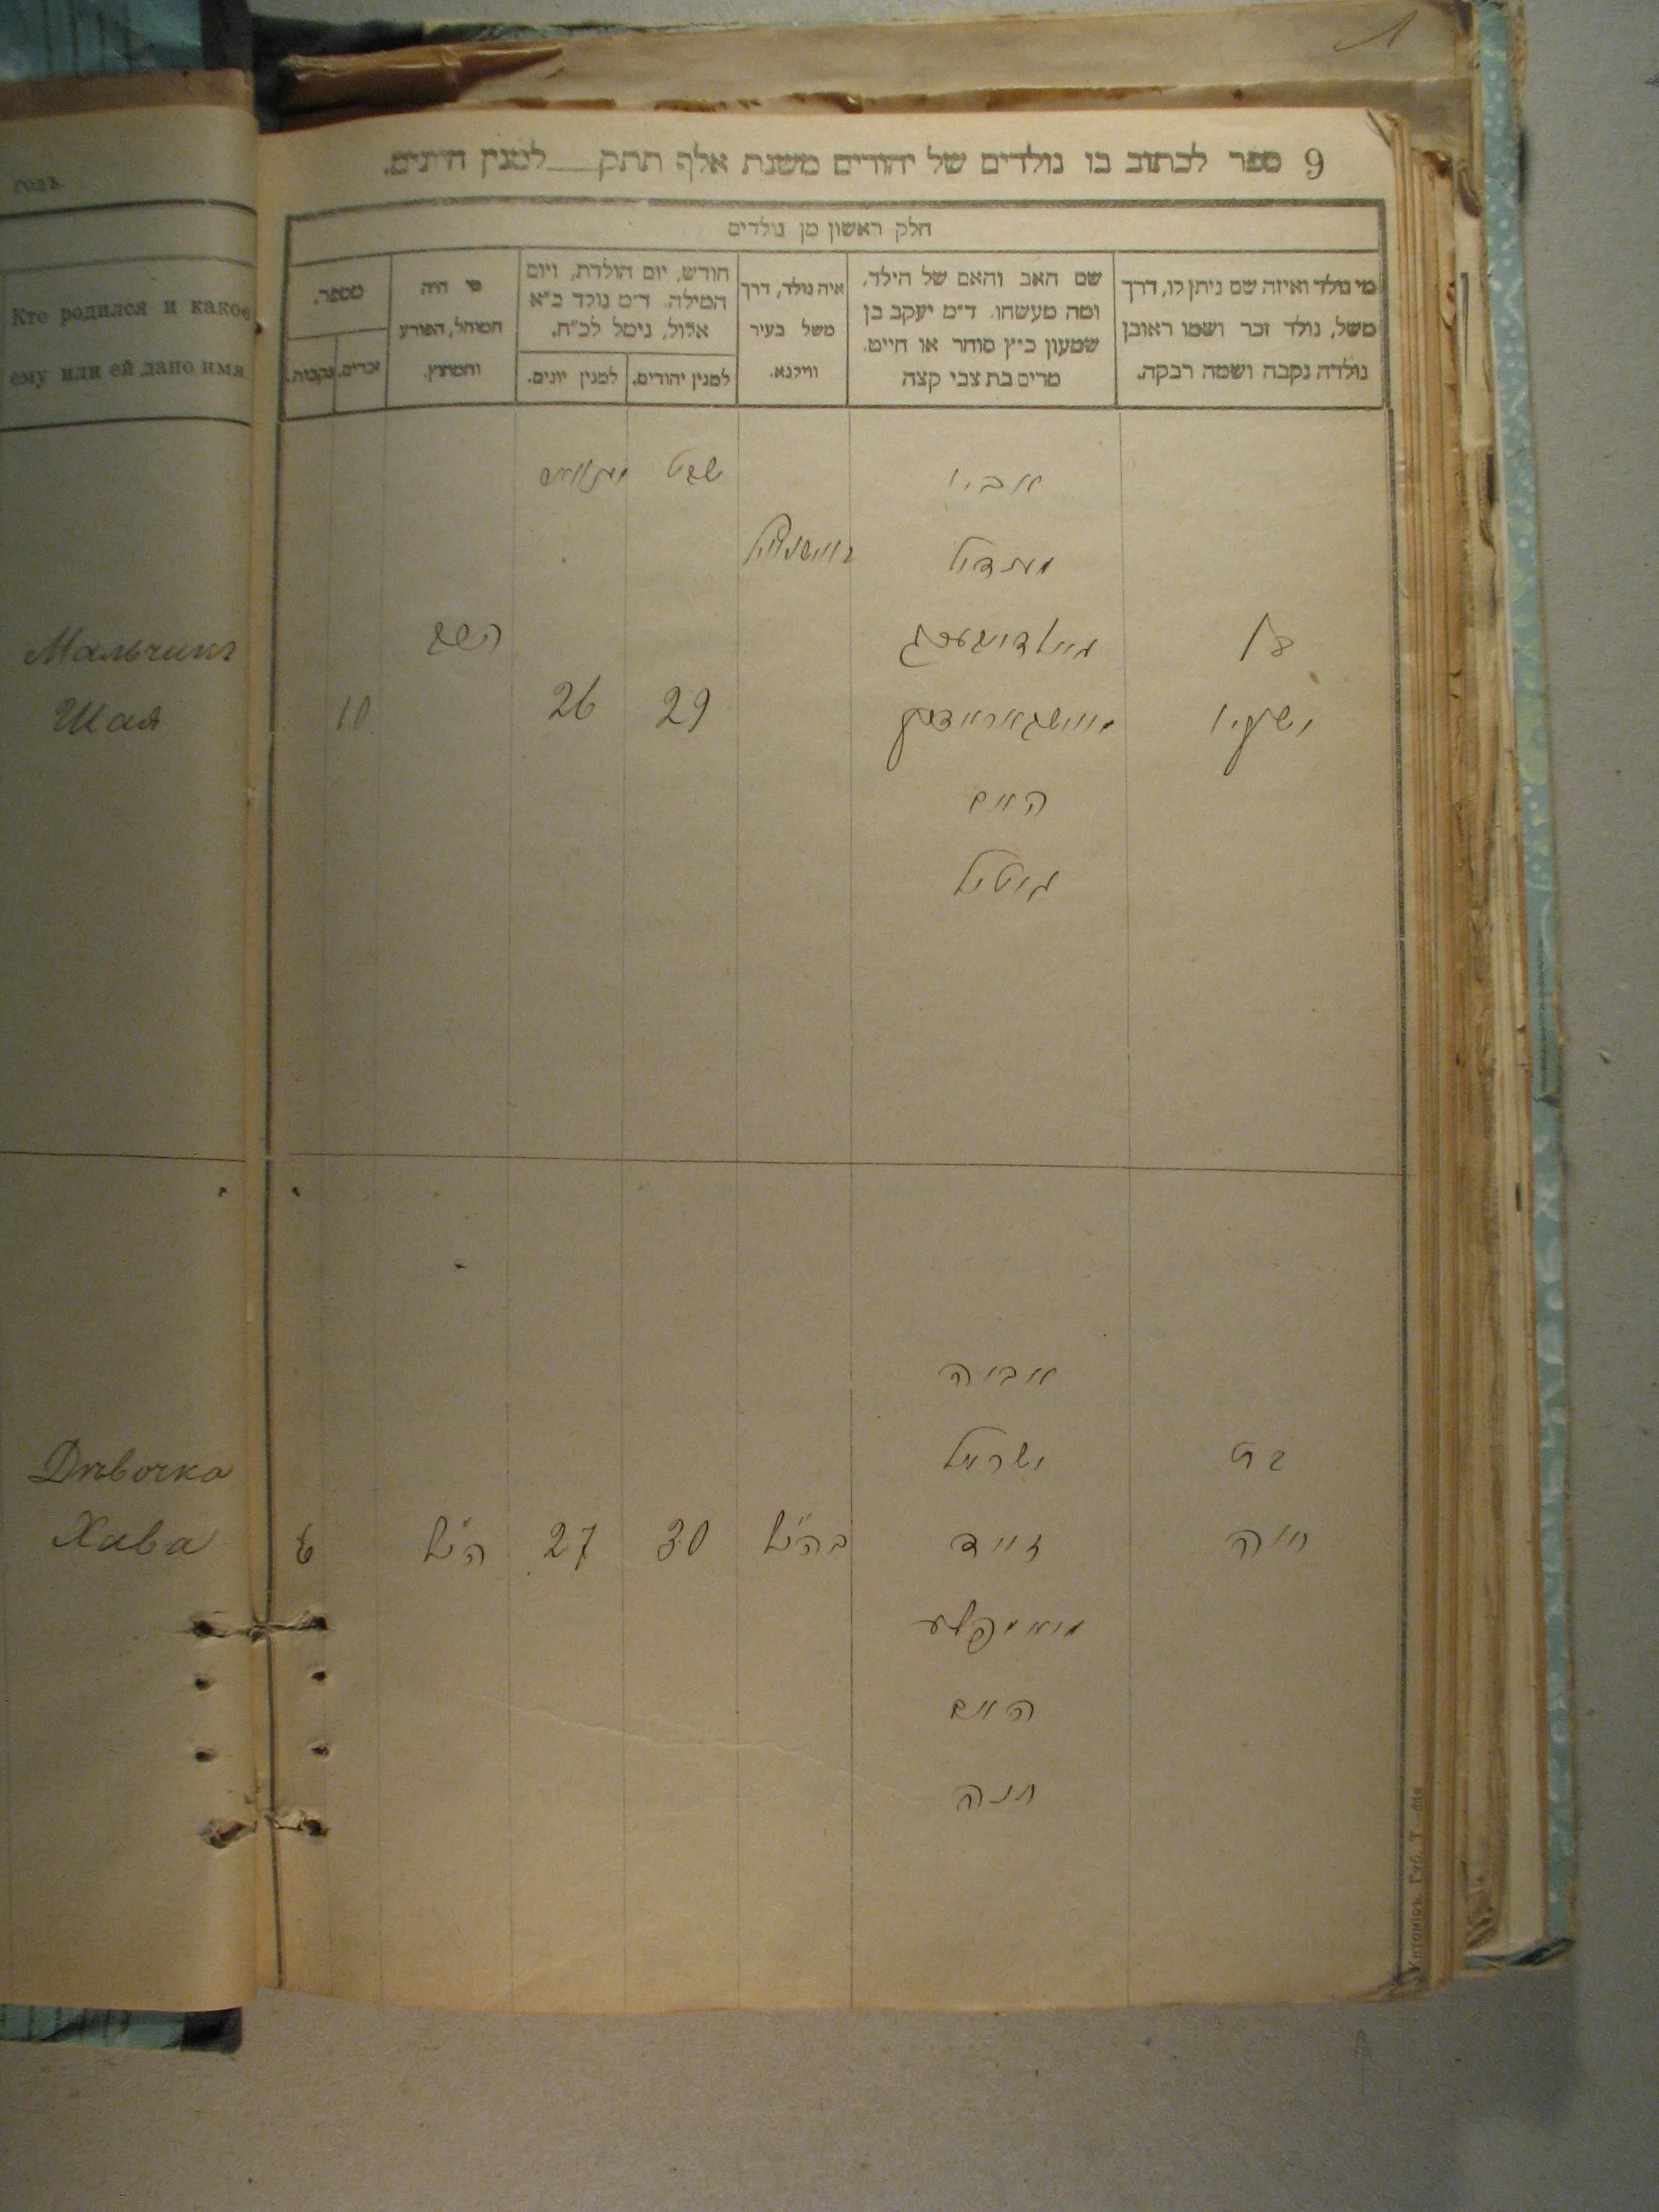 1
9 ספר לכתוב בו נולדים של יהודים משנת אלף תתק למנין היונים.
חלק ראשון מן נולדים
מי נולד ואיזה שם ניתן לו, דרך
משל, נולד זכר ושמו ראובן
נולדה נקבה ושמה רבקה.
שם האב והאם של הילד,
ומה מעשהו. ד״מ יעקב בן
שמעון כ״ץ סוחר או חייט.
מרים בת צבי קצה
איה נולד, דרך
משל בעיר
ווילנא.
חודש, יום הולדת, ויום
המילה. ד״מ נולד כ״א
אלול, נימל לכ״ח.
למנין יהודים.
למנין יונים.
מי היה
המוהל, הפורע
והמוצץ.
מספר.
זכרים.
נקבות.
годъ
Кто родился и какое
ему или ей дано имя
אביו
שבט
ינואר
מענדיל
בן
ישעיו
29
26
10
האם
גיטיל
Мальчикъ
Шая
אביה
ישראל
דוד
האם
חנה
בת
חוה
בהנ״ל
30
27
הנ״ל
6
Дѣвочка
Хава
Житоміръ. Губ. Т-фія